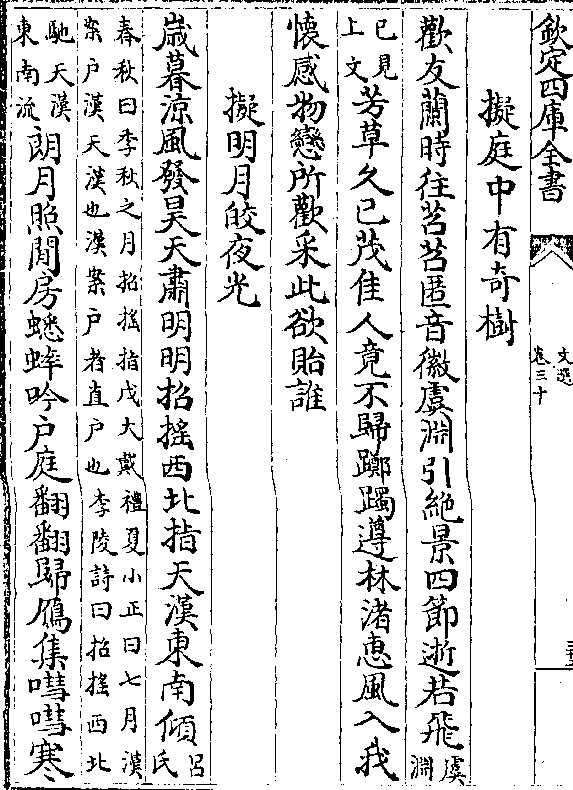 欽定四庫全書
文選
卷三十
擬庭中有奇樹
歡友蘭時往苕苕匿音徽虞淵引絶景四節逝若飛虞淵
已見上文芳草久已茂佳人竟不歸躑躅遵林渚惠風入我
懷感物戀所歡采此欲貽誰
擬明月皎夜光
嵗暮涼風發昊天肅明明招搖西北指天漢東南傾吕氏
春秋曰季秋之月招搖指戌大戴禮夏小正曰七月漢
案户漢天漢也漢案户者直户也李陵詩曰招搖西北
馳天漢東南流朗月照閒房蟋蟀吟户庭翻翻歸鴈集嘒嘒寒